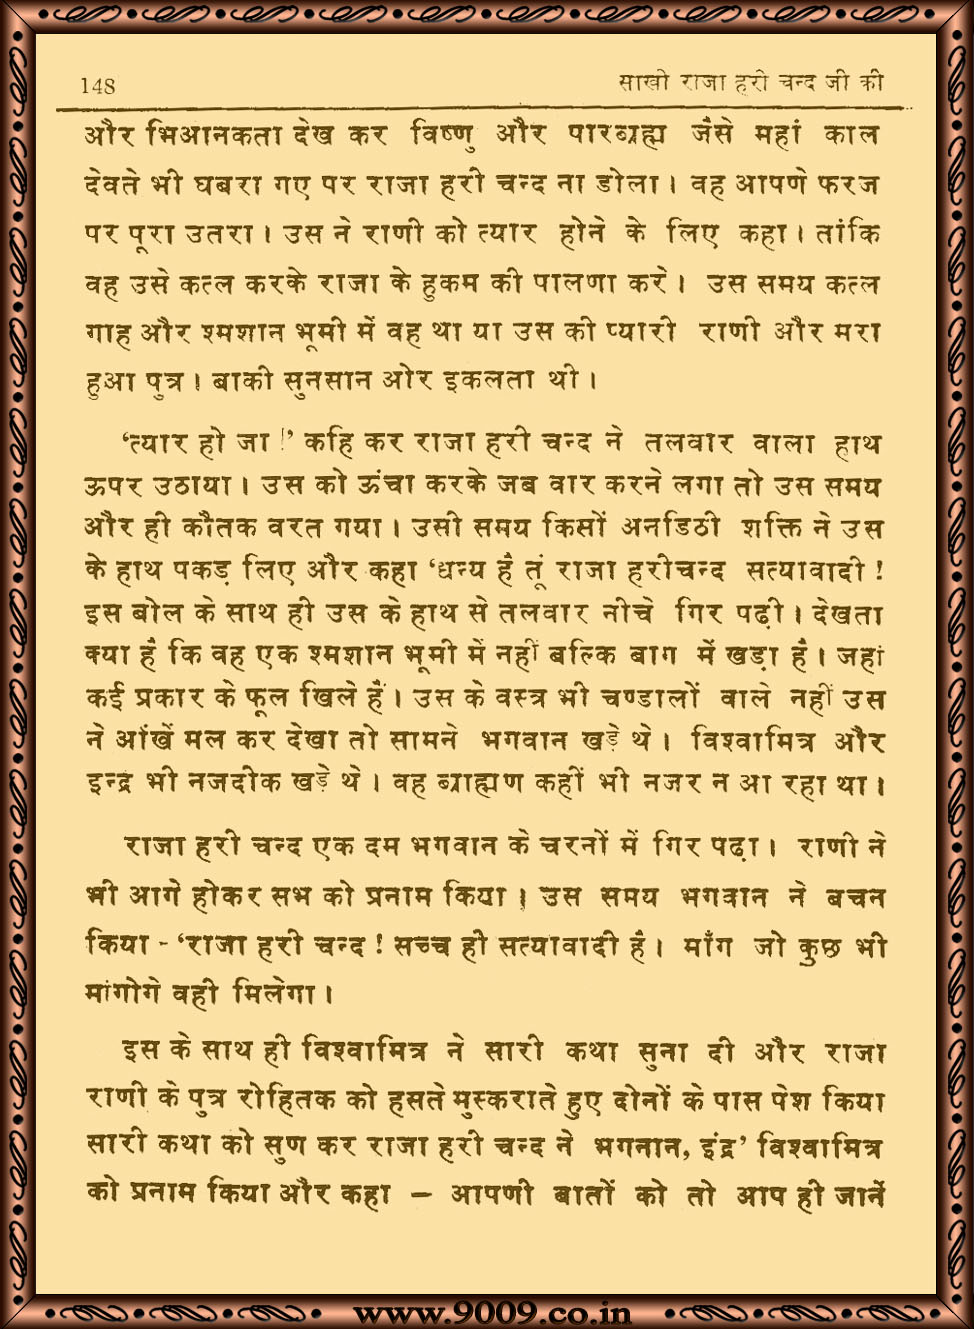 148 साखी राजा हरी चन्द जी की
और भिआनकता देख कर विष्णु और पारब्रह्म जैसे महां काल
देवते भी घबरा गए पर राजा हरी चन्द ना डोला। वह आपणे फरज
पर पूरा उतरा। उस ने राणी को त्यार होने के लिए कहा। तांकि
वह उसे कत्ल करके राजा के हुकम की पालणा करे। उस समय कत्ल
गाह और श्मशान भूमी में वह था या उस की प्यारी राणी और मरा
हुआ पुत्र। बाकी सुनसान ओर इकलता थी।
‘त्यार हो जा !’ कहि कर राजा हरी चन्द ने तलवार वाला हाथ
ऊपर उठाया। उस को ऊंचा करके जब वार करने लगा तो उस समय
और ही कौतक वरत गया। उसी समय किसों अनडिठी शक्ति ने उस
के हाथ पकड़ लिए और कहा ‘धन्य है तूं राजा हरीचन्द सत्यावादी !
इस बोल के साथ ही उस के हाथ से तलवार नीचे गिर पढ़ी। देखता
क्या है कि वह एक श्मशान भूमी में नहीं बल्कि बाग में खड़ा है। जहां
कई प्रकार के फूल खिले हैं। उस के वस्त्र भी चण्डालों वाले नहीं उस
ने आंखें मल कर देखा तो सामने भगवान खड़े थे। विश्वामित्र और
इन्द्र भी नजदीक खड़े थे। वह ब्राह्मण कहीं भी नजर न आ रहा था।
राजा हरी चन्द एक दम भगवान के चरनों में गिर पढ़ा। राणी ने
भी आगे होकर सभ को प्रनाम किया। उस समय भगवान ने बचन
किया - ‘राजा हरी चन्द ! सच्च ही सत्यावादी है। माँग जो कुछ भी
मांगोगे वही मिलेगा।
इस के साथ ही विश्वामित्र ने सारी कथा सुना दी और राजा
राणी के पुत्र रोहितक को हसते मुस्कराते हुए दोनों के पास पेश किया
सारी कथा को सुण कर राजा हरी चन्द ने भगनान, इंद्र’ विश्वामित्र
को प्रनाम किया और कहा — आपणी बातों को तो आप ही जानें
www.9009.co.in